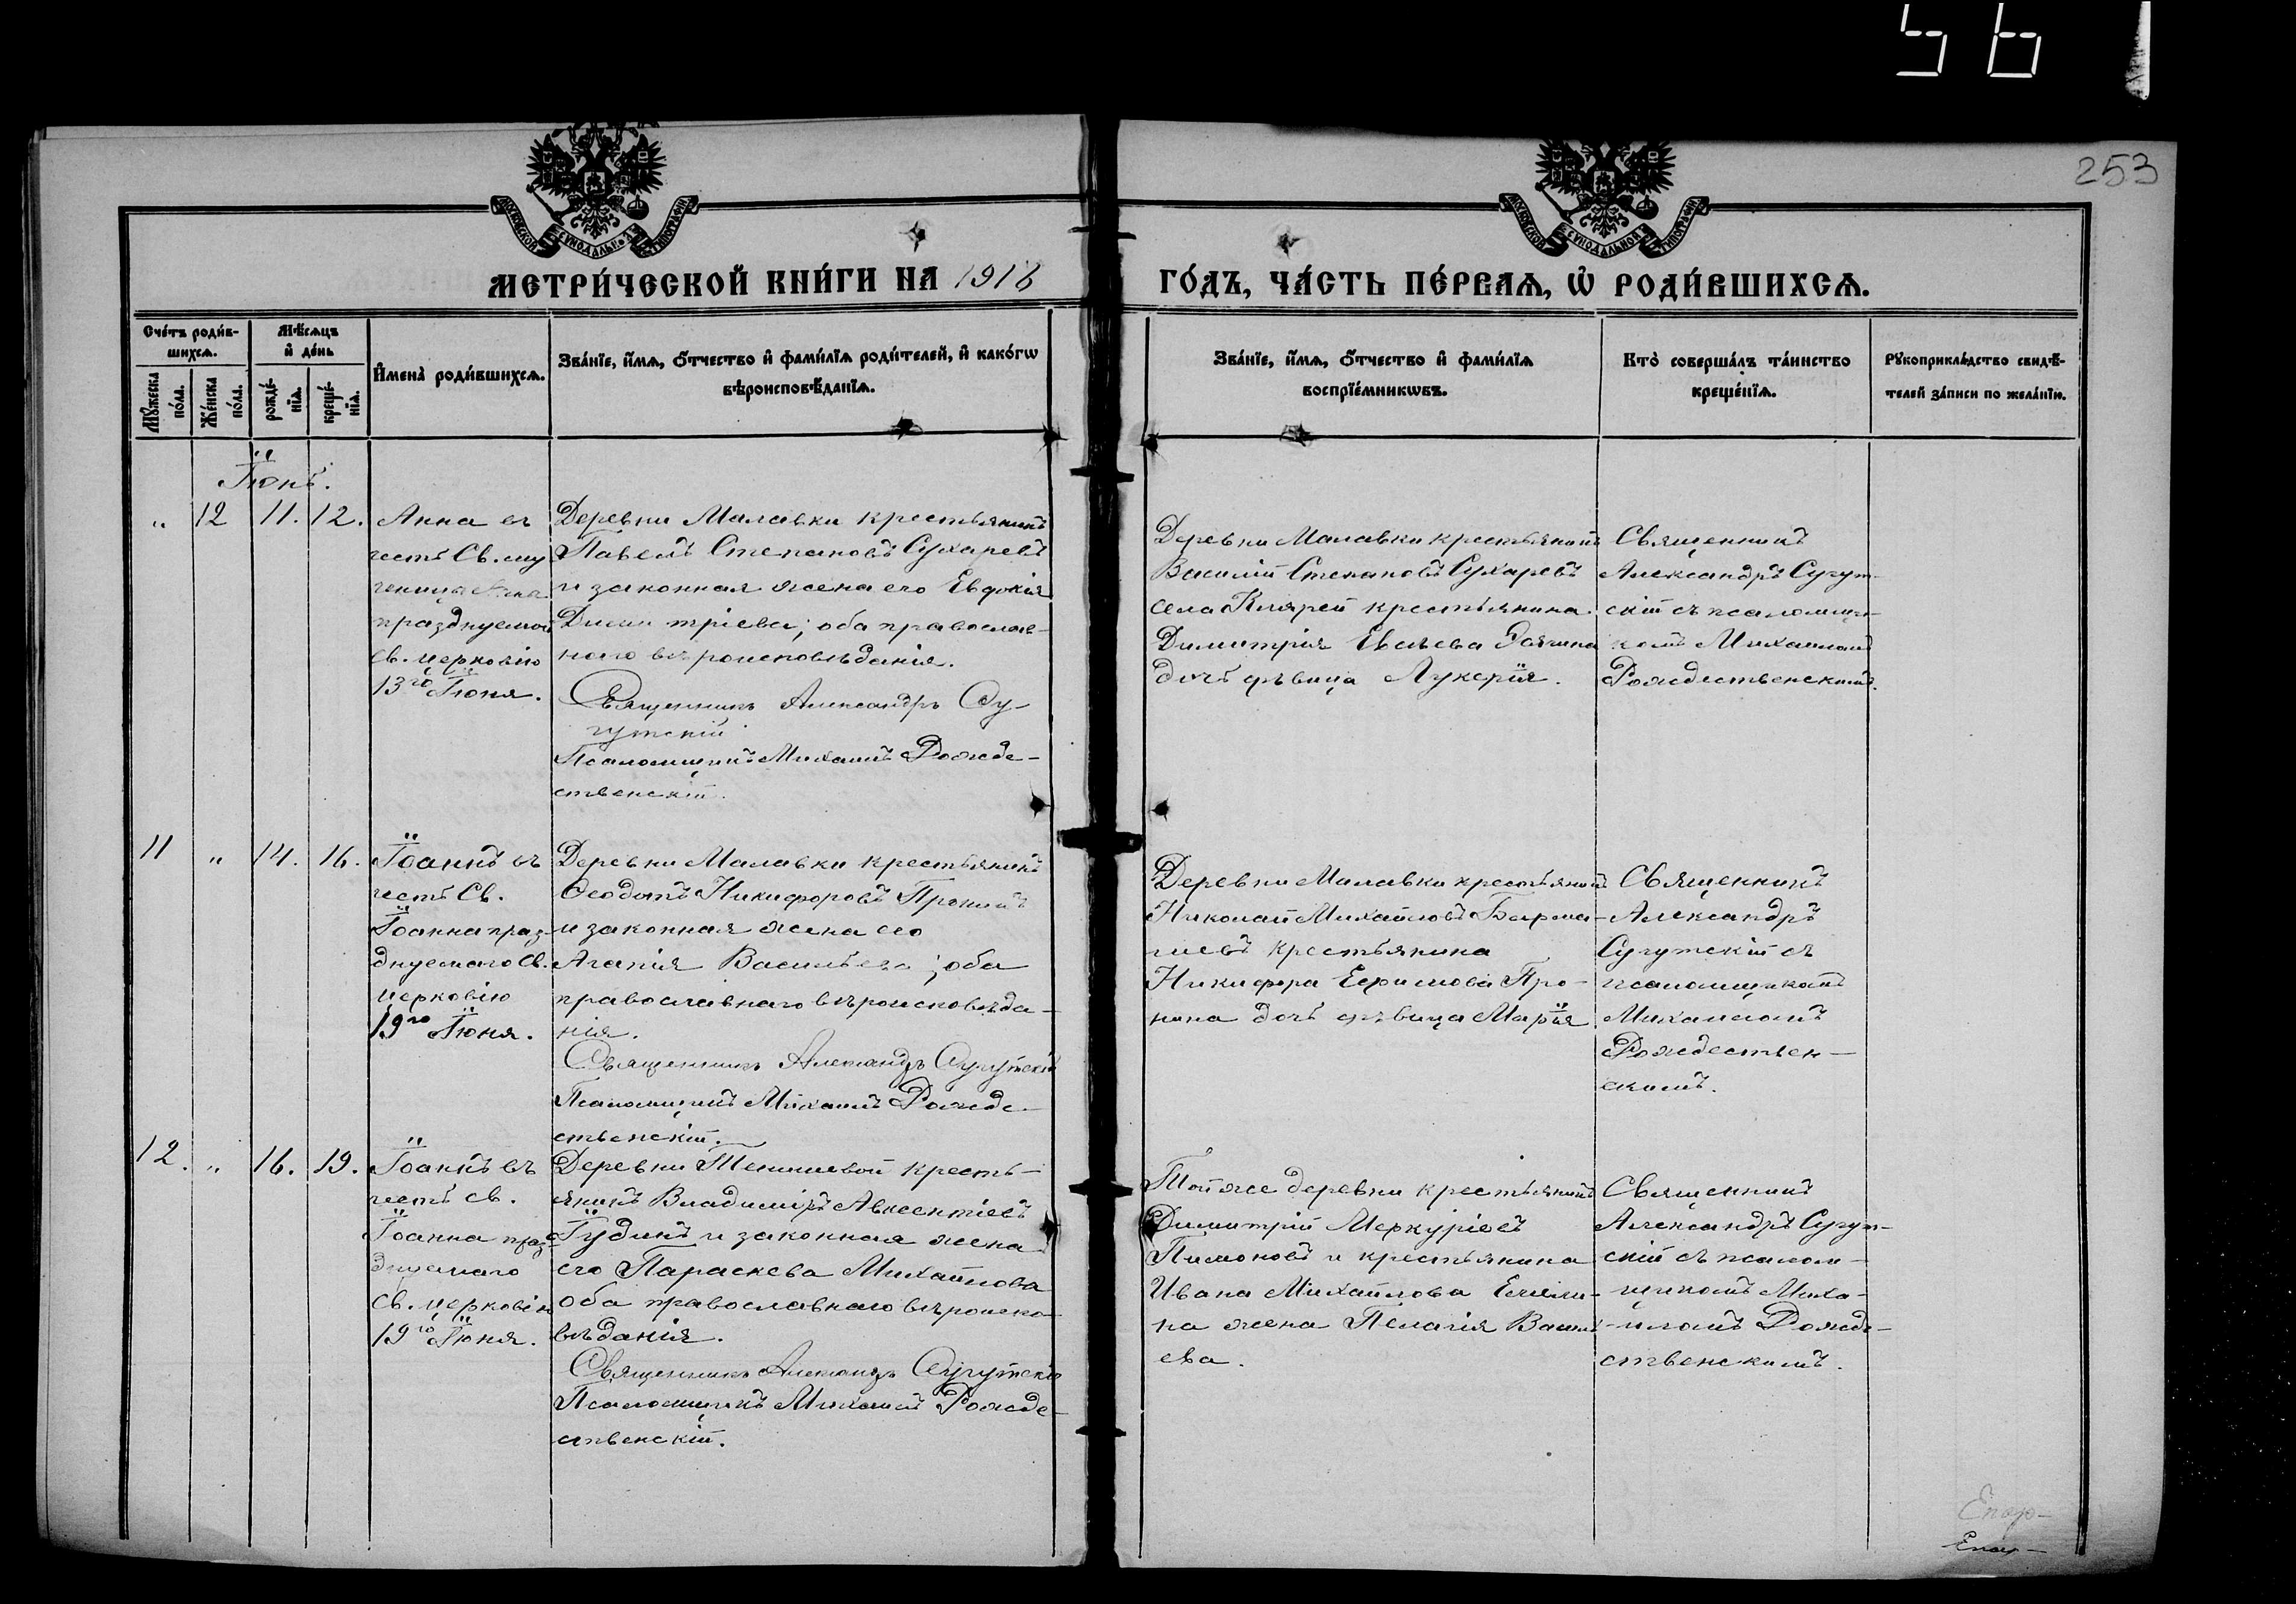 253
МОСКОВСКОЙ СѴНОДАЛЬНОЙ ТИПОГРАФІИ
МОСКОВСКОЙ СѴНОДАЛЬНОЙ ТИПОГРАФІИ
МЕТРИ́ЧЕСКОЙ КНИ́ГИ НА 1916
ГО́ДЪ, ЧА́СТЬ ПЕ́РВАѦ, Ѡ҆ РОДИ́ВШИХСѦ.
Сче́тъ роди́в-
шихсѧ.
Мꙋ́жеска
по́ла.
Же́нска
по́ла.
Мѣ́сѧцъ
и҆ де́нь
рожде́-
нїѧ.
креще́-
нїѧ.
И҆мена̀ роди́вшихсѧ.
Зва́нїе, и҆́мѧ, ѻ҆́тчество и҆ фами́лїѧ роди́телей, и҆ како́гѡ
вѣроисповѣ́данїѧ.
Зва́нїе, и҆́мѧ, ѻ҆́тчество и҆ фами́лїѧ
воспрїе́мникѡвъ.
Кто̀ соверша́лъ та́инство
креще́нїѧ.
Рꙋкоприкла́дство свидѣ́-
телей за́писи по жела́нїю.
Іюнь.
„ 12 11. 12.
Анна въ
честь Св. му
ченицы Анны
празднуемой
св. церковію
13го Іюня.
Деревни Малавки крестьянинъ
Павелъ Степановъ Сухаревъ
и законная жена его Евдокія
Димитріева; оба православ-
наго вѣроисповѣданія.
Священникъ Александръ Су-
гутскій
Псаломщикъ Михаилъ Рожде-
ственскій.
Деревни Малавки крестьянинъ
Василій Степановъ Сухаревъ
села крестьянина
Димитрія
дочь дѣвица Лукерія.
Священникъ
Александръ Сугут-
скій съ псаломщи-
комъ Михаиломъ
Рождественскимъ.
11 „ 14. 16.
Іоаннъ въ
честь Св.
Іоанна праз-
днуемаго Св.
церковію
19го Іюня.
Деревни Малавки крестьянинъ
Ѳеодотъ Никифоровъ Пронинъ
и законная жена его
Агапія Васильева; оба
православнаго вѣроисповѣда-
нія.
Священникъ Александръ Сугутскій
Псаломщикъ Михаилъ Рожде-
ственскій.
Деревни Малавки крестьянинъ
Николай Михайловъ
крестьянина
Никифора Ефимова Про-
нина дочь дѣвица Марія
Священникъ
Александръ
Сугутскій съ
псаломщикомъ
Михаиломъ
Рождествен-
скимъ.
12. „ 16. 19.
Іоаннъ въ
честь св.
Іоанна праз-
днуемаго
Св. церковію
19го Іюня.
Деревни Тенишевой кресть-
янинъ Владиміръ Авксентіевъ
Гудинъ и законная жена
его Параскева Михайлова
оба православнаго вѣроиспо-
вѣданія.
Священникъ Александръ Сугутскій
Псаломщикъ Михаилъ Рожде-
ственскій.
Той же деревни крестьянинъ
Димитрій Меркуріевъ
и крестьянина
Ивана Михайлова
на жена Пелагія Василь-
ева.
Священникъ
Александръ Сугут-
скій съ псалом-
щикомъ Миха-
иломъ Рожде-
ственскимъ.